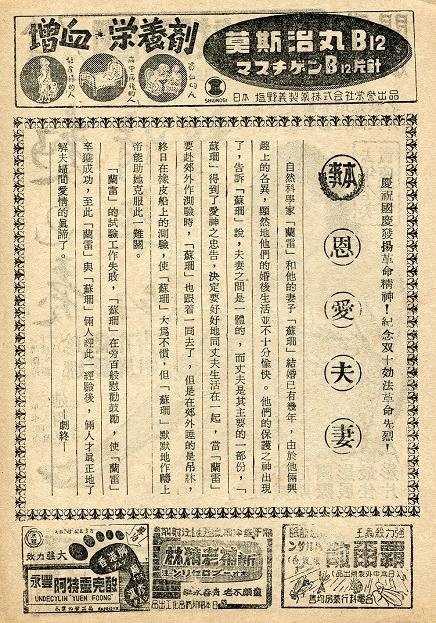 增血·榮養劑
莫斯治丸B12
マスチゲンB12片針
日本 塩野義製薬株式会社榮譽出品
SHIONOGI
慶祝國慶發揚革命精神！紀念双十効法革命先烈！
本事
恩愛夫妻
自然科學家「蘭雷」和他的妻子「蘇珊」結婚已有幾年，由於他倆興
趣上的各異，顯然地他們的婚後生活並不十分愉快。他們的保護之神出現
了，告訴「蘇珊」說，夫妻之間是一體的，而丈夫是其主要的一部份，「
蘇珊」得到了愛神之忠告，決定要好好地同丈夫生活在一起，當「蘭雷」
要赴郊外作測驗時，「蘇珊」也跟着一同去了，但是在郊外睡的是吊牀，
終日在橡皮船上的測驗，使「蘇珊」大爲不慣，但「蘇珊」默默地作禱上
帝能助她克服此一難關。
「蘭雷」的試驗工作失敗，「蘇珊」在旁百般慰勸鼓勵，使「蘭雷」
卒獲成功，至此「蘭雷」與「蘇珊」倆人經此一經驗後，倆人才眞正地了
解夫婦間愛情的眞諦了。
——劇終——
強力殺蟲王
大强力效
香港脚
永豐 阿特靈克酸
UNDECYLIN "YUEN FOONG"